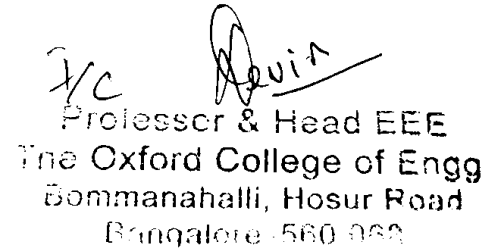 I/C Devin
Professor & Head EEE
The Oxford College of Engg
Bommanahalli, Hosur Road
Bangalore-560 068